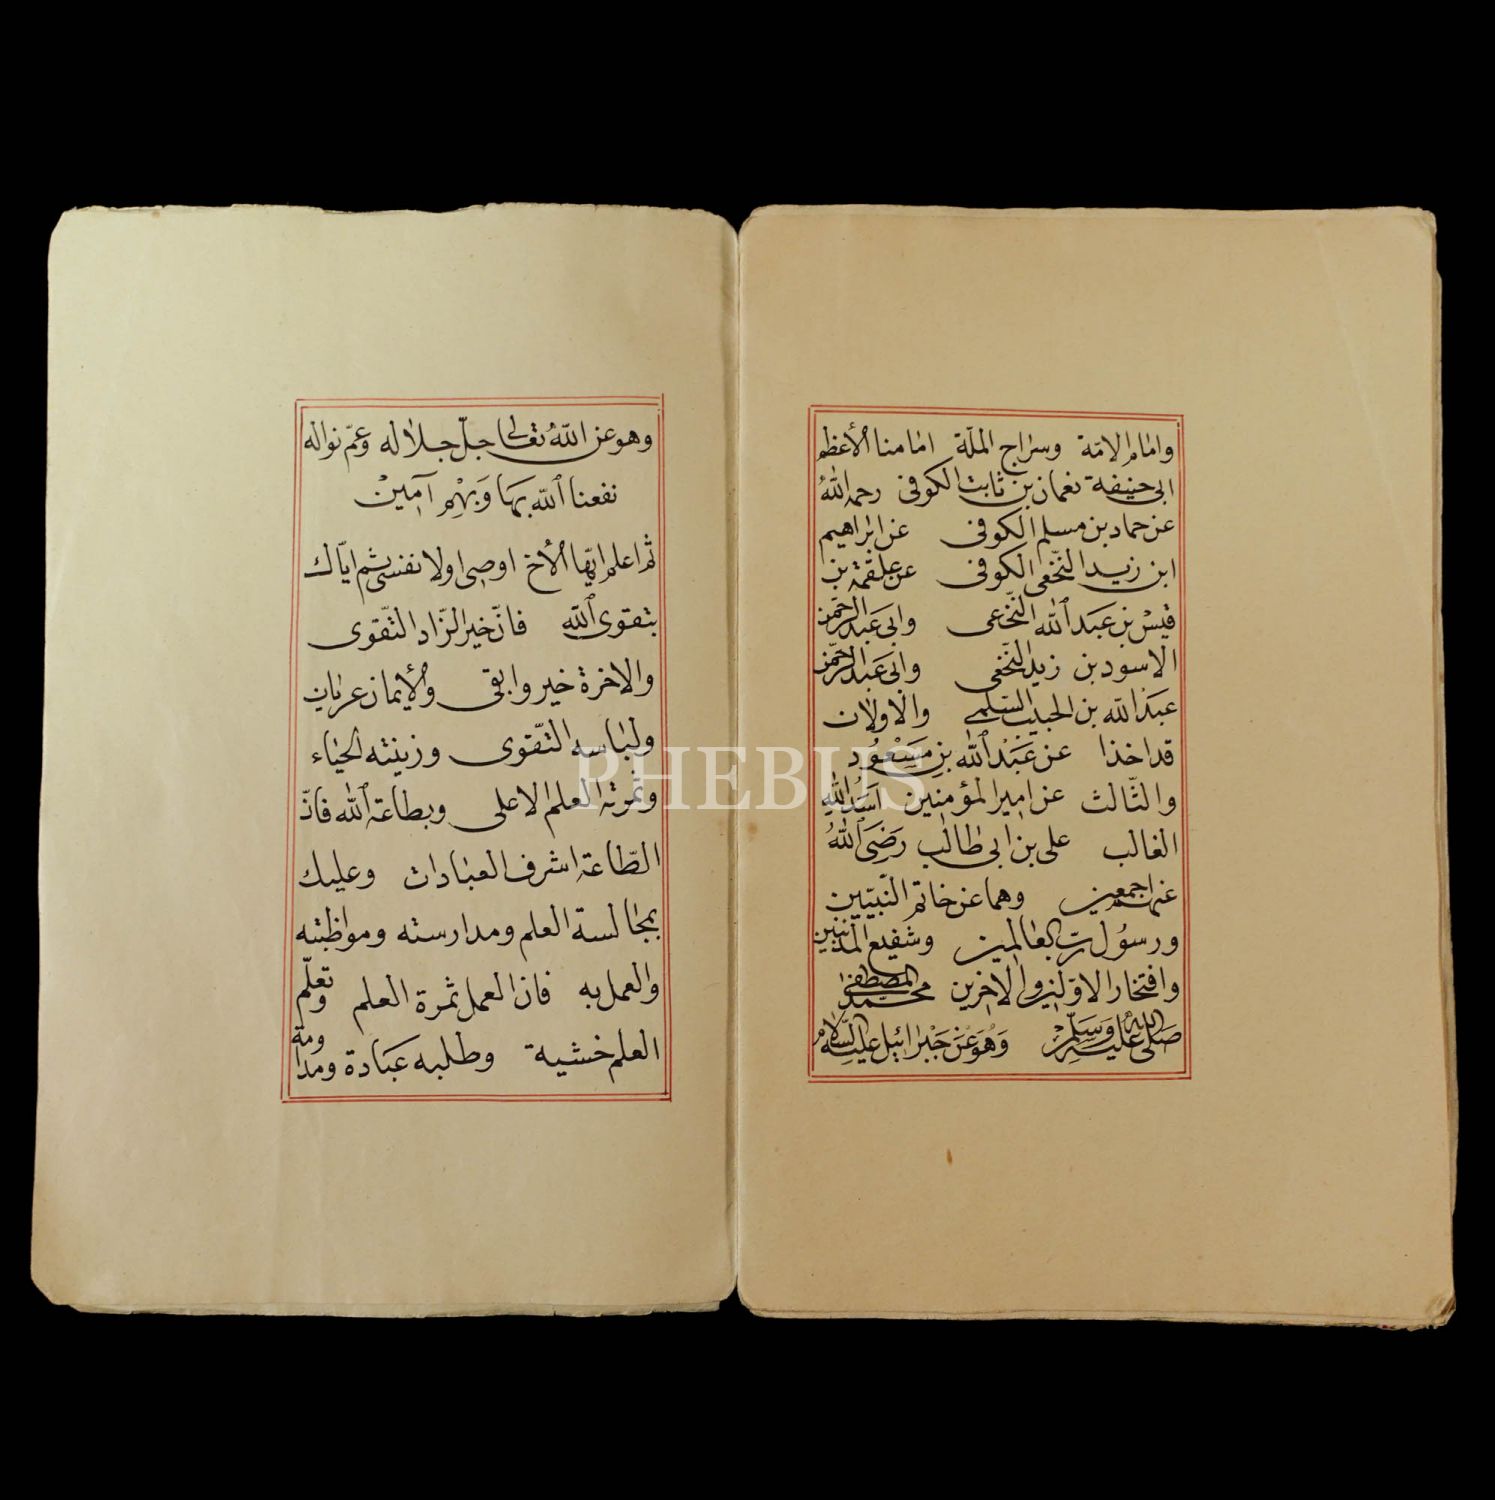 وامام الامّة وسراج الملّة امامنا الأعظم
ابى حنيفة نعمان بن ثابت الكوفى رحمه اللهُ
عن حماد بن مسلم الكوفى عن ابراهيم
ابن زيد النّخفى الكوفى عن علقمة بن
قيْس بن عَبَد اللّٰه النّخعى وابى عَبد الرحمّن
الاسود بن زيد النّخفى وابى عَبد الرحمّن
عبَدْ اللّٰه بن الحبيب السّلمى والاولان
قد اخذا عن عَبَدْ اللّٰه بن مسَعُود
والثّالث عن امير المؤمنين اسَدُ اللّٰهِ
الغالب على بن ابى طالب رَضىَ اللّٰهُ
عنهم اجمعين وهما عن خاتم النّبيّين
ورسوُل ربّ العالمين وشفيع المذنبين
وافتخار الاوّلين والاخرين محمّد المصطفى
صَلّى اللّٰهُ عليْه وَسَلّمْ وَهُوَ عَنْ جَبْرائيل عليه السّلام
وهو عن اللّٰهُ تعالى جلّ جلاله وعمّ نواله
نفعنا اللّٰه بهَا وَبهْم آمينْ
ثم اعلم ايّها الأخ اوصى اولا نفسى ثم ايّاك
بتقوى اللّٰه فانّ خير الزّاد التّقوى
والاخرة خير وابقى والأيمان عريان
ولباسه التّقوى وزينته الحياء
وثمرته العلم الاعلى وبطاعة اللّٰه فانّ
الطّاعة اشرف العبادات وعليك
بمجالسة العلم ومدارسته ومواظبته
والعمل به فان العمل ثمرة العلم وتعلّم
العلم خشية وطلبه عَبَادة ومداومة
PHEBUS